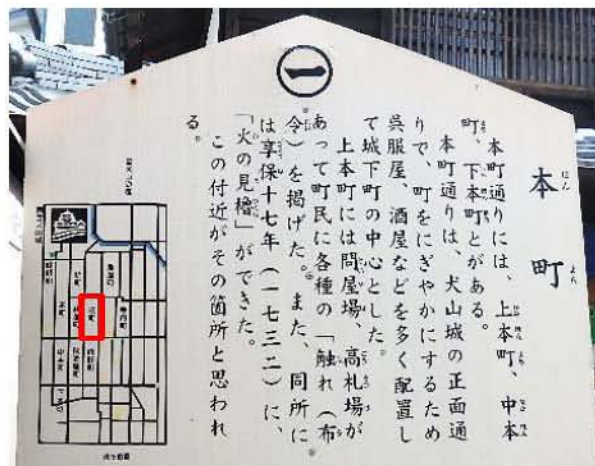 一
本町
本町通りには、上本町、中本
町、下本町とがある。
本町通りは、犬山城の正面通
りで、町をにぎやかにするため
呉服屋、酒屋などを多く配置し
て城下町の中心とした。
上本町には問屋場、高札場が
あって町民に各種の「触れ（布
令）を掲げた。また、同所に
は享保十七年（一七三二）に、
「火の見櫓」ができた。
この付近がその箇所と思われ
る。